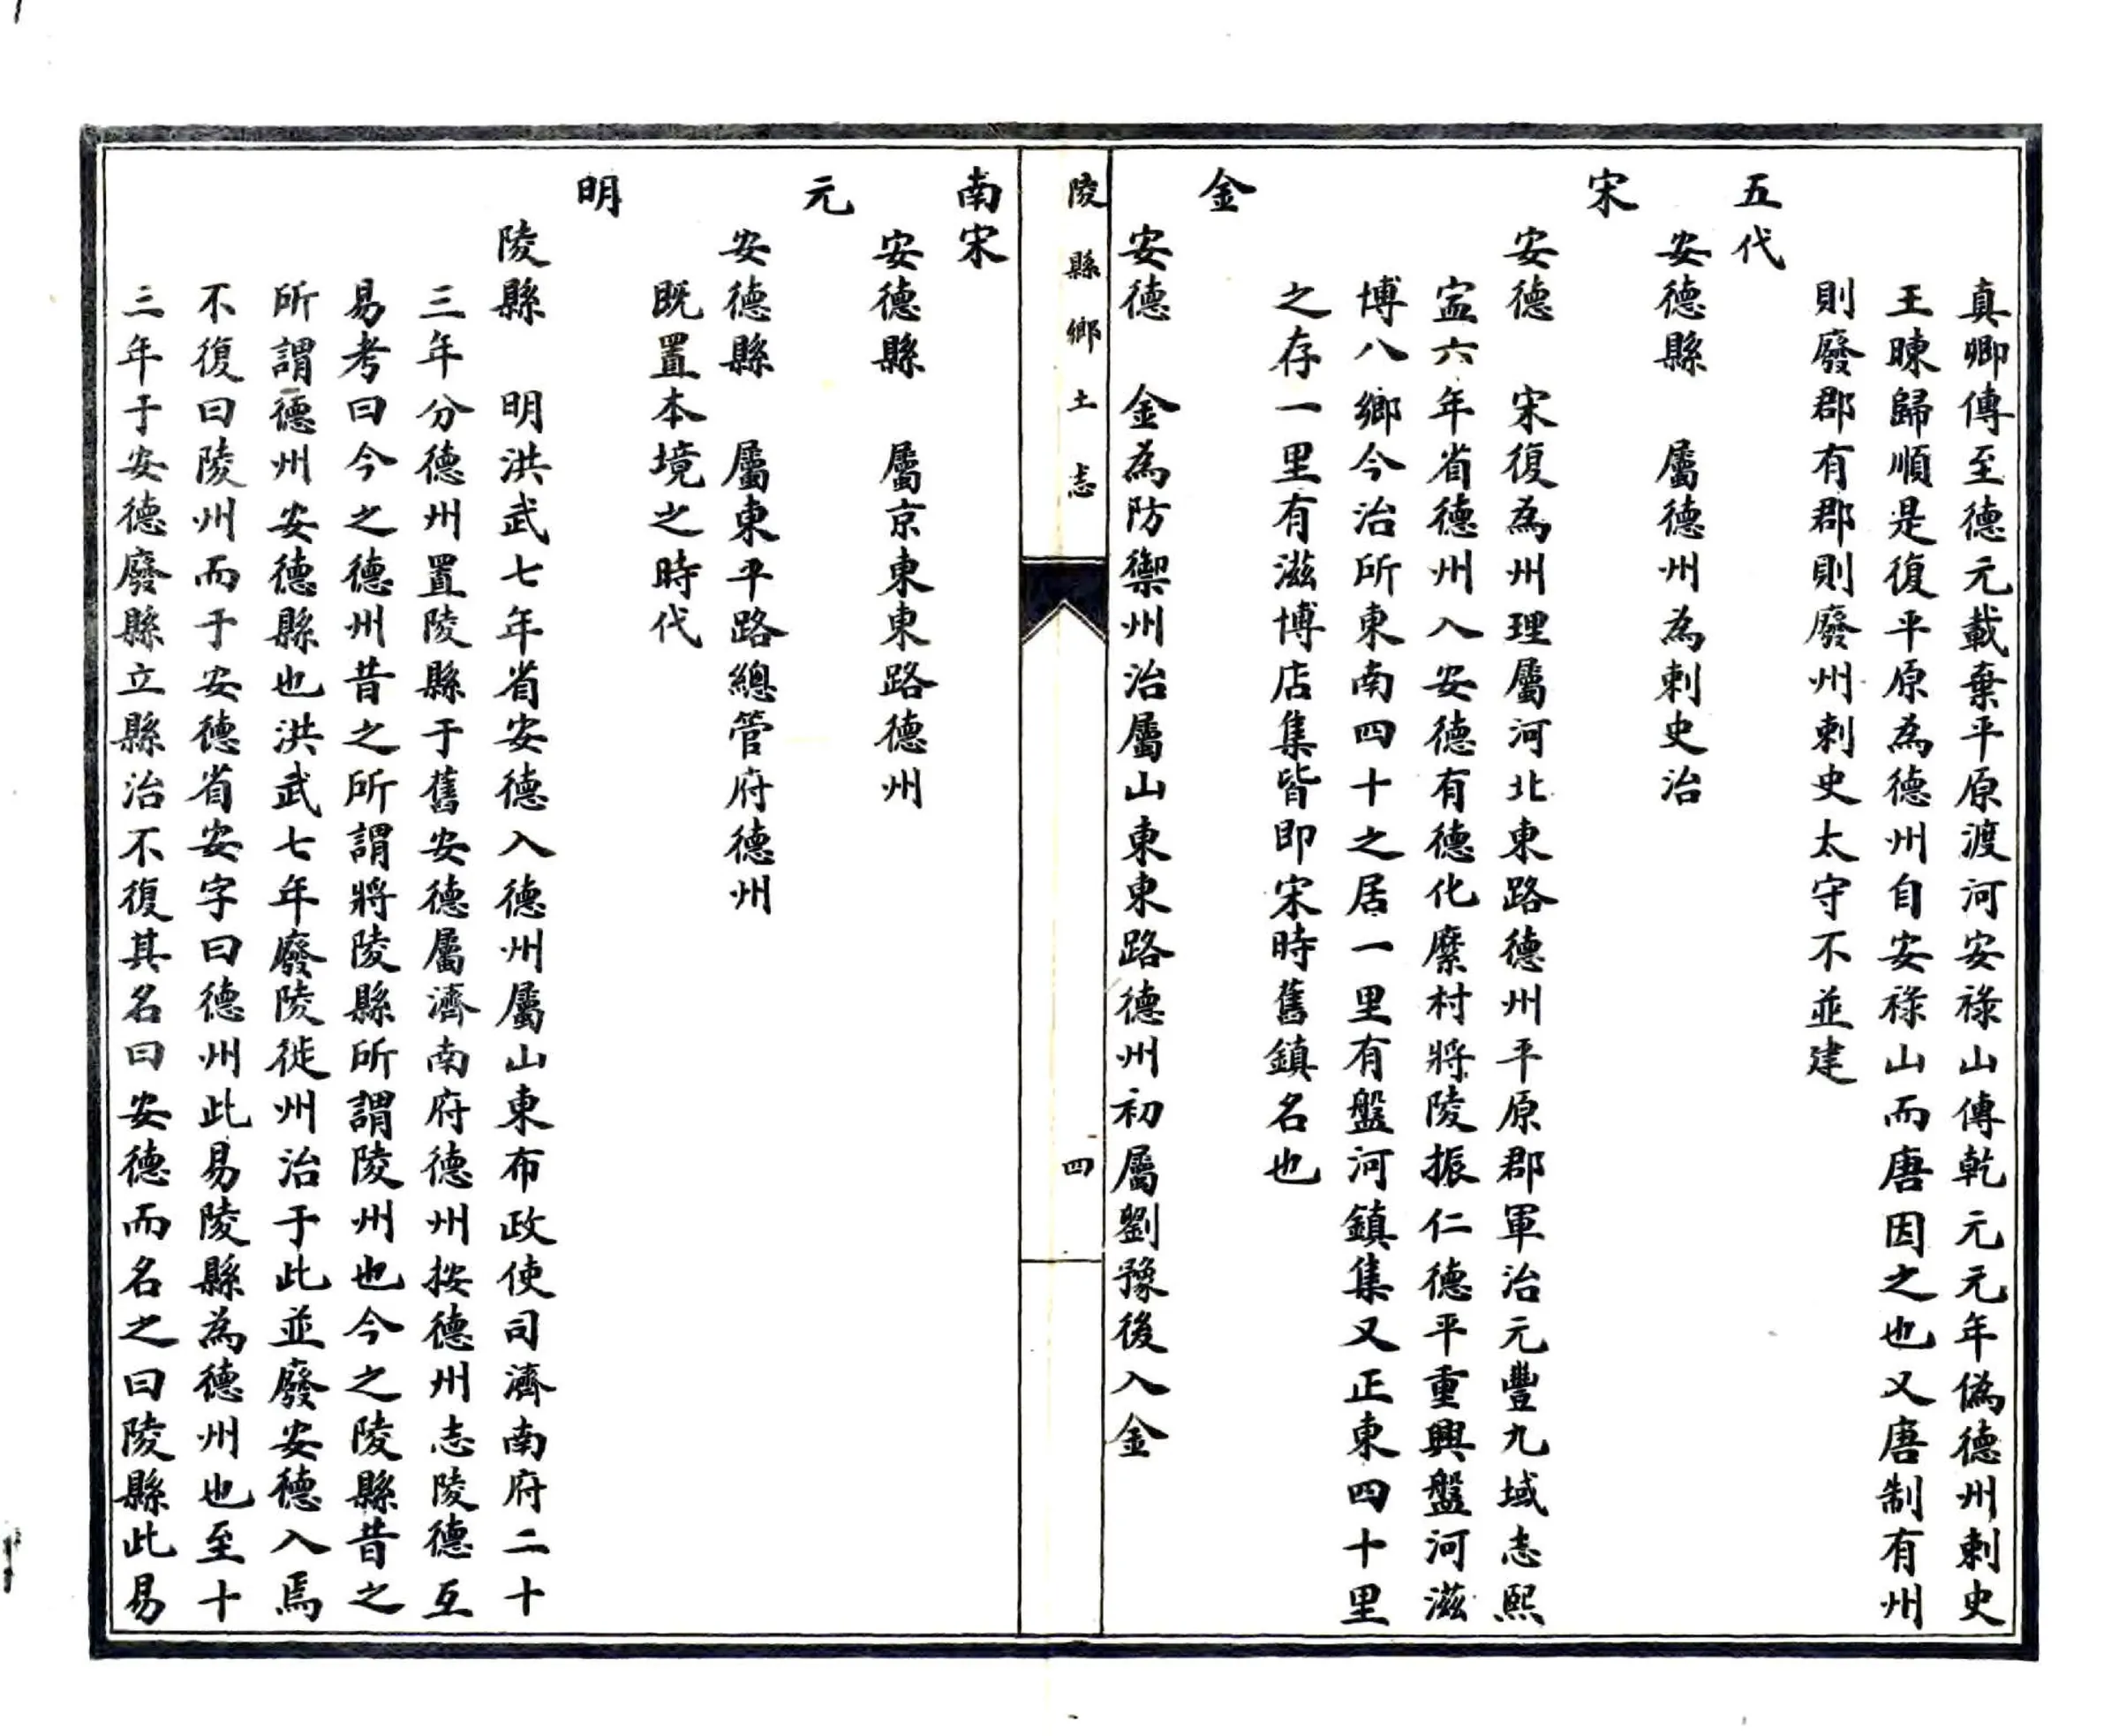 真卿傳至德元載棄平原渡河安祿山傳乾元元年偽德州刺史
王暕歸順是復平原為德州自安祿山而唐因之也又唐制有州
則廢郡有郡則廢州刺史太守不並建
五代
安德縣　屬德州為刺史治
宋
安德　宋復為州理屬河北東路德州平原郡軍治元豐九域志熙
寍六年省德州入安德有德化糜村將陵振仁德平重興盤河滋
博八鄉今治所東南四十之居一里有盤河鎮集又正東四十里
之存一里有滋博店集皆即宋時舊鎮名也
金
安德　金為防禦州治屬山東東路德州初屬劉豫後入金
陵縣鄉土志
四
南宋
安德縣　屬京東東路德州
元
安德縣　屬東平路總管府德州
既置本境之時代
明
陵縣　明洪武七年省安德入德州屬山東布政使司濟南府二十
三年分德州置陵縣于舊安德屬濟南府德州按德州志陵德互
易考曰今之德州昔之所謂將陵縣所謂陵州也今之陵縣昔之
所謂德州安德縣也洪武七年廢陵徙州治于此並廢安德入焉
不復曰陵州而于安德省安字曰德州此易陵縣為德州也至十
三年于安德廢縣立縣治不復其名曰安德而名之曰陵縣此易